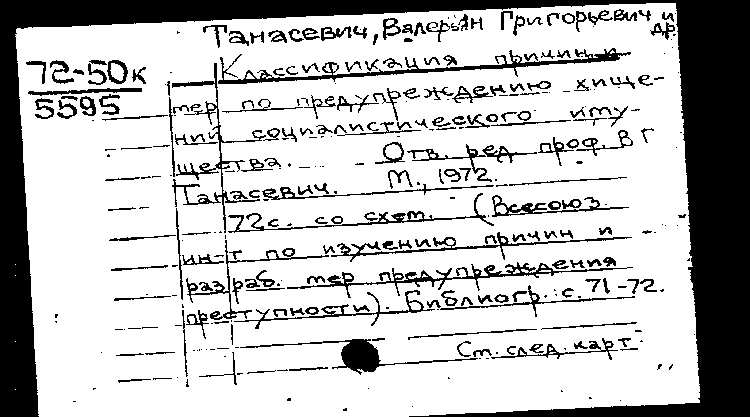 Танасевич, Валерьян Григорьевич и др.
72-50к
5595
Классификация причин и
мер по предупреждению хище-
ний социалистического иму-
щества. Отв. ред. проф. В Г
Танасевич. М., 1972.
72с. со схем. (Всесоюз.
ин-т по изучению причин и
разраб. мер предупреждения
преступности). Библиогр.: с. 71-72.
См. след. карт.